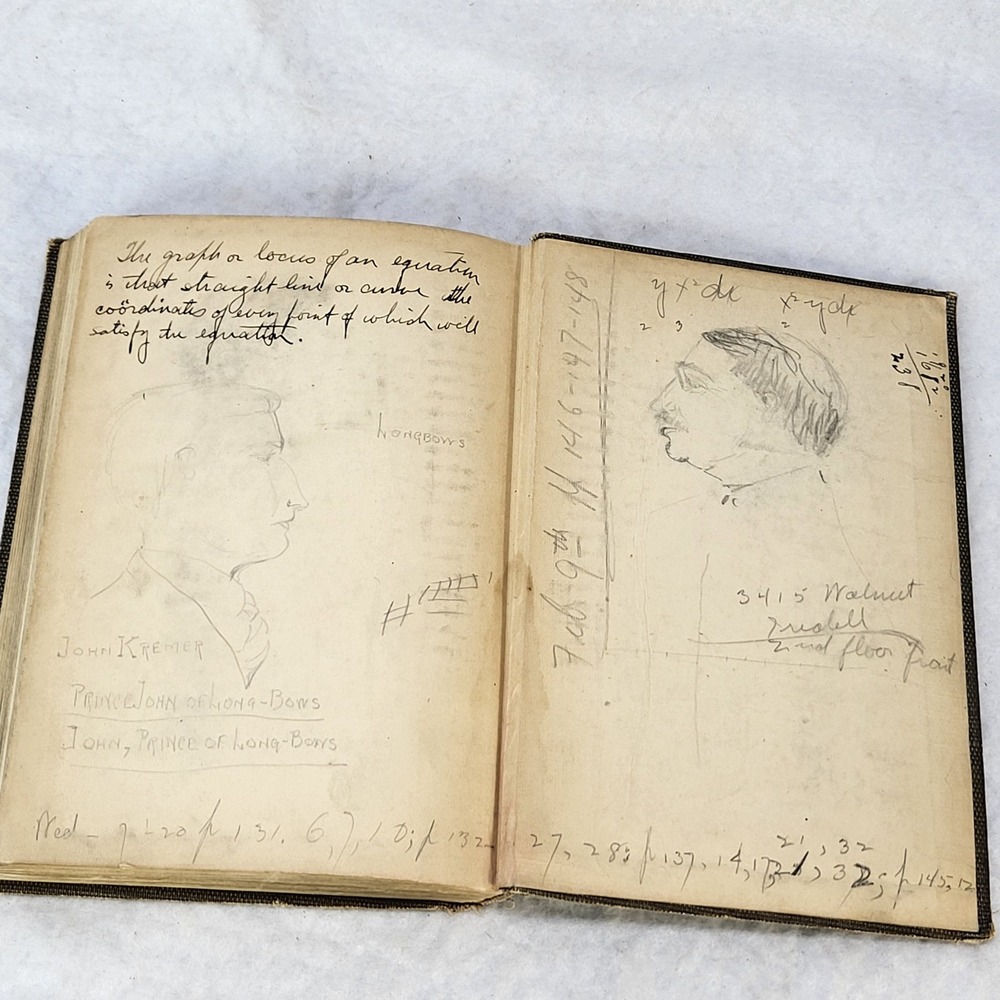 The graph or locus of an equation
is that straight line or curve the
coördinates of every point of which will
satisfy the equation.
LONGBOWS
JOHN KREMER
PRINCE JOHN OF LONG-BOWS
JOHN, PRINCE OF LONG-BOWS
Wed - 20 p 131. 6, 7, 10; p 132
y x² dx x² y dx
2 3 2
3415 Walnut
2nd floor front
21, 32
27, 28; p 137, 14, 32; p 145, 12